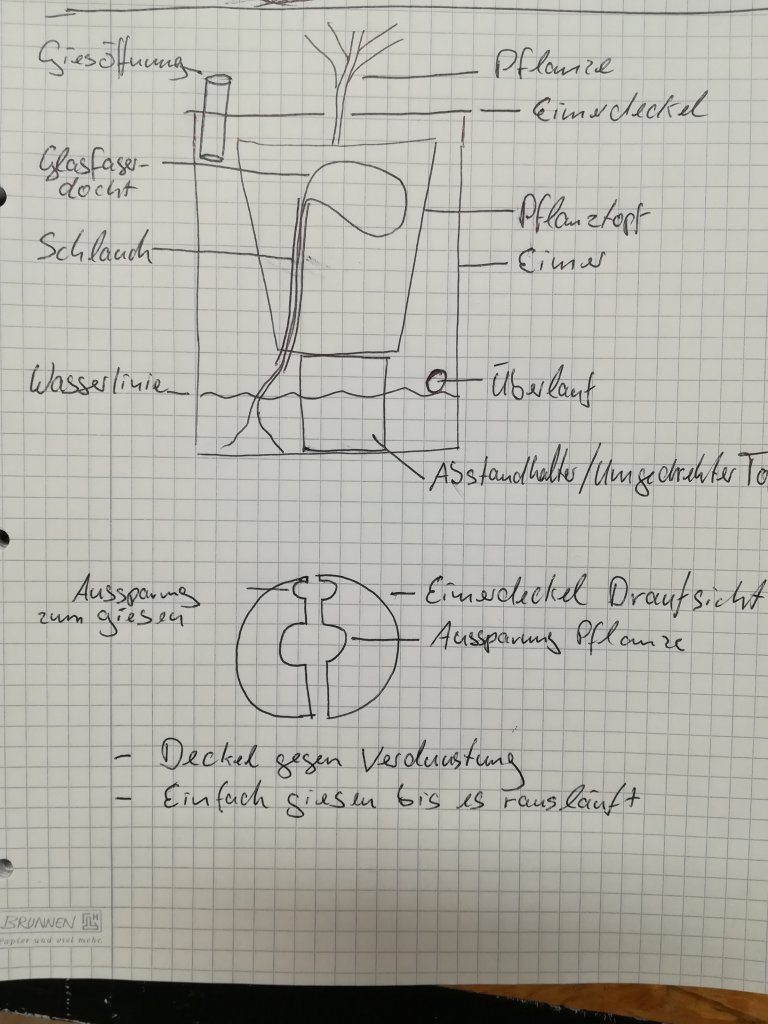 Giesöffnung
Pflanze
Eimerdeckel
Glasfaser-
docht
Pflanztopf
Schlauch
Eimer
Wasserlinie
Überlauf
Abstandhalter/Umgedrehter To
Aussparung
zum giesen
Eimerdeckel Draufsicht
Aussparung Pflanze
- Deckel gegen Verdunstung
- Einfach giesen bis es rausläuft
BRUNNEN
Papier und viel mehr.